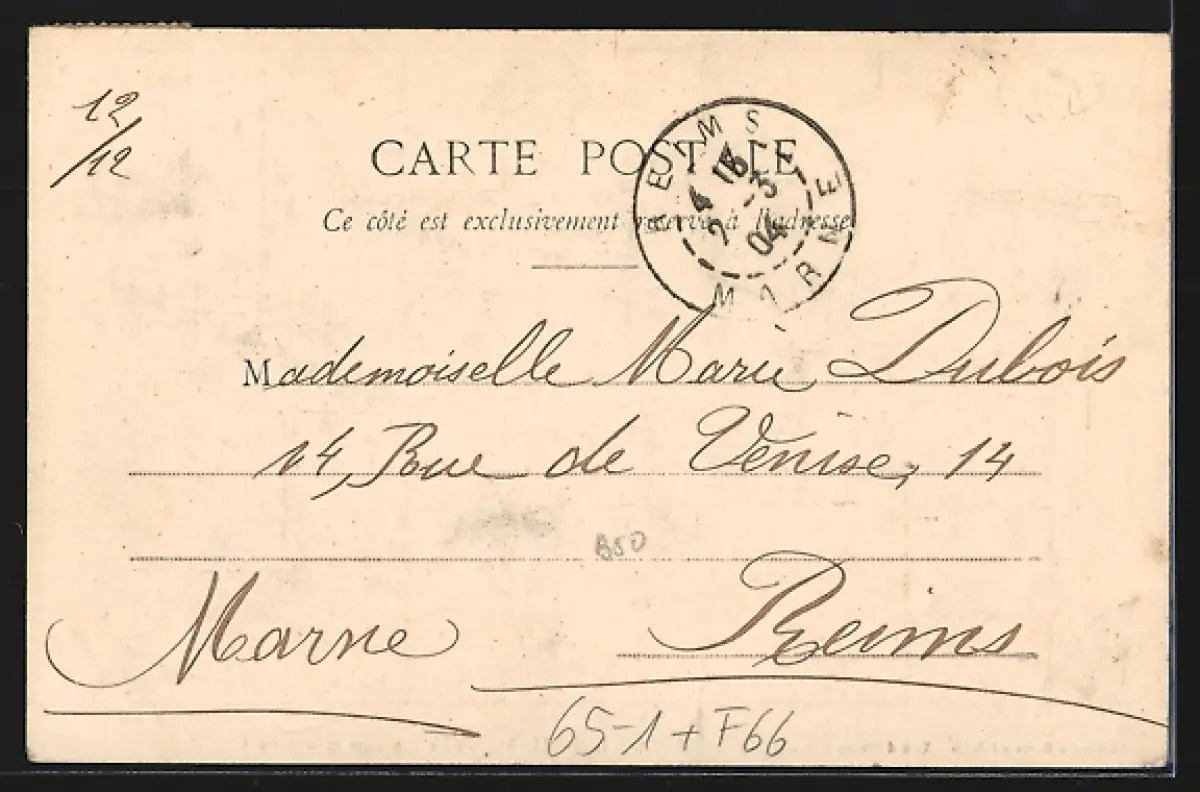 12/12
CARTE POSTALE
Ce côté est exclusivement réservé à l'adresse
REIMS
24 3
04
MARNE
Mademoiselle Marie Dubois
14, Rue de Venise, 14
B50
Marne
Reims
65-1+F66